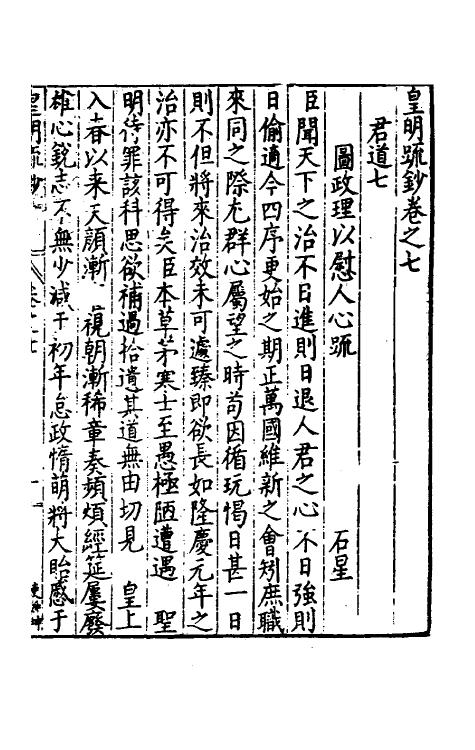 皇明疏鈔卷之七
君道七
圖政理以慰人心疏 石星
臣聞天下之治不日進則日退人君之心不日強則
日偷適今四序更始之期正萬國維新之會矧庶職
來同之際尤群心屬望之時茍因循玩愒日甚一日
則不但將來治效未可遽臻即欲長如隆慶元年之
治亦不可得矣臣本草茅寒士至愚極陋遭遇 聖
明待罪該科思欲補過拾遺其道無由切見 皇上
入春以来天顏漸 視朝漸稀章奏頻煩經筵屢廢
雄心銳志不無少減于初年怠政惰萌將大貽慼于
皇明疏鈔 卷之七